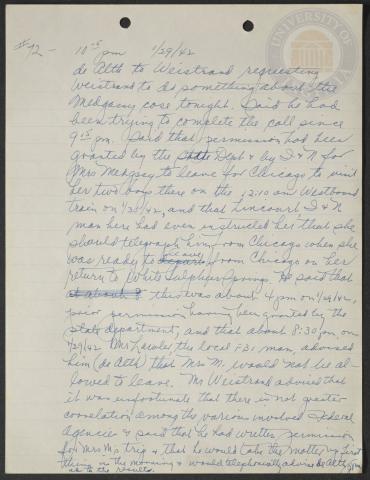 #72- 10 15 pm 1/29/42
de Alth to Weistrand requesting
Weistrand to do something about the
Medgasy case tonight. Said he had
been trying to complete the call since
9 15 pm. Said that permission had been
granted by the State Dept & by I & N for
Mrs Medgsey to leave for Chicago to visit
her two boys there on the 12:10 am Westbound
train on 1/30/42, and that Lincourt I & N
man here had even instructed her that she
should telegraph him from Chicago when she
was ready to leave from Chicago on her
return to White Sulphur Springs. He said that
at about 8 this was about 4 pm on 1/29/42,
prior permission having been granted by the
State department, and that about 8:30 pm on
1/29/42 Mr the local F.B.I. man, advised
him (de Alth) that Mrs M. would not be al-
lowed to leave. Mr Weistrand advised that
it was unfortunate that there is not greater
correlation among the various involved Federal
Agencies & said that he had written permission
for Mrs M's trip & that he would take the matter up first
thing in the morning & would telephonically advise de Alth
as to the results.
UNIVERSITY OF